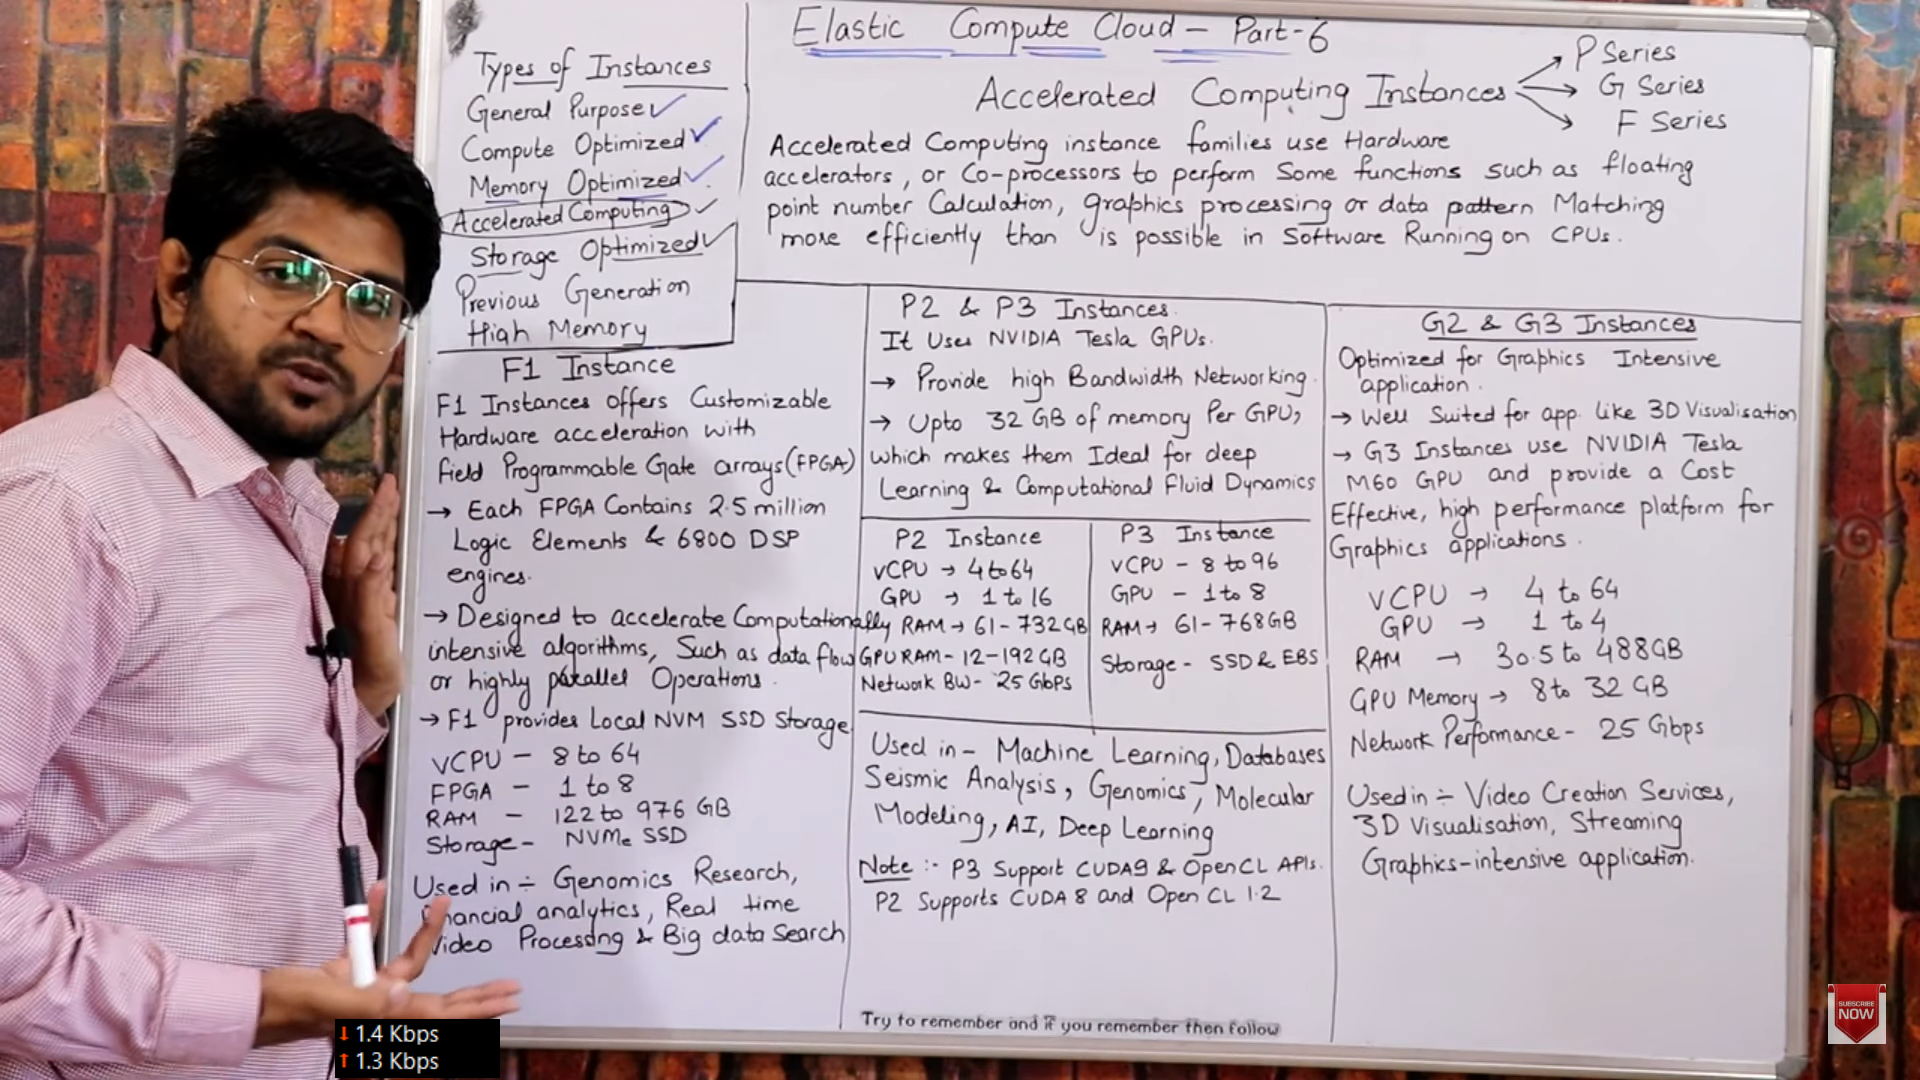 Elastic Compute Cloud - Part-6
Types of Instances
General Purpose ✓
Compute Optimized ✓
Memory Optimized ✓
Accelerated Computing ✓
Storage Optimized ✓
Previous Generation
High Memory
Accelerated Computing Instances
→ P Series
→ G Series
→ F Series
Accelerated Computing instance families use Hardware
accelerators, or Co-processors to perform Some functions such as floating
point number Calculation, graphics processing or data pattern Matching
more efficiently than is possible in Software Running on CPUs.
F1 Instance
F1 Instances offers Customizable
Hardware acceleration with
field Programmable Gate arrays (FPGA)
→ Each FPGA Contains 2.5 million
Logic Elements & 6800 DSP
engines.
→ Designed to accelerate Computationally
intensive algorithms, Such as data flow
or highly parallel Operations.
→ F1 provides Local NVM SSD Storage
VCPU - 8 to 64
FPGA - 1 to 8
RAM - 122 to 976 GB
Storage - NVMe SSD
Used in ÷ Genomics Research,
financial analytics, Real time
Video Processing & Big data Search
P2 & P3 Instances.
It Uses NVIDIA Tesla GPUs.
→ Provide high Bandwidth Networking.
→ Upto 32 GB of memory Per GPU,
which makes them Ideal for deep
Learning & Computational Fluid Dynamics
P2 Instance
VCPU → 4 to 64
GPU → 1 to 16
RAM → 61 - 732 GB
GPU RAM - 12 - 192 GB
Network BW - 25 Gbps
P3 Instance
VCPU - 8 to 96
GPU - 1 to 8
RAM → 61 - 768 GB
Storage - SSD & EBS
Used in - Machine Learning, Databases
Seismic Analysis, Genomics, Molecular
Modeling, AI, Deep Learning
Note :- P3 Support CUDA9 & OpenCL APIs.
P2 Supports CUDA 8 and Open CL 1.2
G2 & G3 Instances
Optimized for Graphics Intensive
application.
→ Well Suited for app. like 3D Visualisation
→ G3 Instances use NVIDIA Tesla
M60 GPU and provide a Cost
Effective, high performance platform for
Graphics applications.
VCPU → 4 to 64
GPU → 1 to 4
RAM → 30.5 to 488GB
GPU Memory → 8 to 32 GB
Network Performance - 25 Gbps
Used in ÷ Video Creation Services,
3D Visualisation, Streaming
Graphics-intensive application.
Try to remember and if you remember then follow
↓ 1.4 Kbps
↑ 1.3 Kbps
SUBSCRIBE
NOW